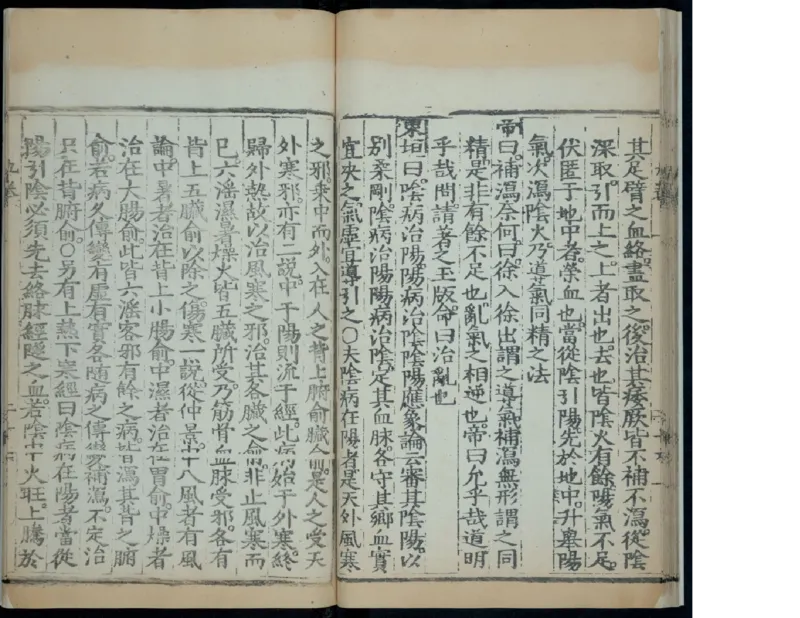 其足臂之血絡盡取之後治其痿厥皆不補不瀉從陰
深取引而上之上者出也去也皆陰火有餘陽氣不足
伏匿于地中者榮血也當從陰引陽先於地中升舉陽
氣次瀉陰火乃導氣同精之法
帝曰補瀉奈何曰徐入徐出謂之導氣補瀉無形謂之同
精是非有餘不足也亂氣之相逆也帝曰允乎哉道明
乎哉問請著之玉版命曰治亂也
東垣曰陰病治陽陽病治陰陰陽應象論云審其陰陽以
別柔剛陰病治陽陽病治陰定其血脉各守其鄉血實
宜決之氣虛宜導引之○夫陰病在陽者是天外風寒
之邪乘中而外入在人之背上腑俞臟俞是人之受天
外寒邪亦有二説中于陽則流于經此病始于外寒終
歸外熱故以治風寒之邪治其各臟之俞非止風寒而
已六淫濕暑燥火皆五臟所受乃筋骨血脉受邪各有
背上五臟俞以除之傷寒一説從仲景中八風者有風
論中暑者治在背上小腸俞中濕者治在胃俞中燥者
治在大腸俞此皆六淫客邪有餘之病皆瀉其背之腑
俞若病久傳變有虛有實各隨病之傳變補瀉不定治
只在背腑俞○另有上熱下寒經曰陰病在陽者當從
陽引陰必須先去絡脉經隧之血若陰中火旺上騰於